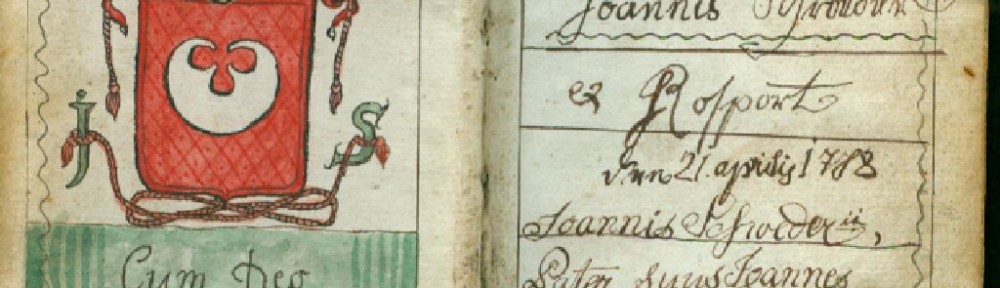 J S
Cum Deo
Joannis
ex Rosport
den 21 aprilis 1788
Joannis Schroderii,
Pater suus Joannes